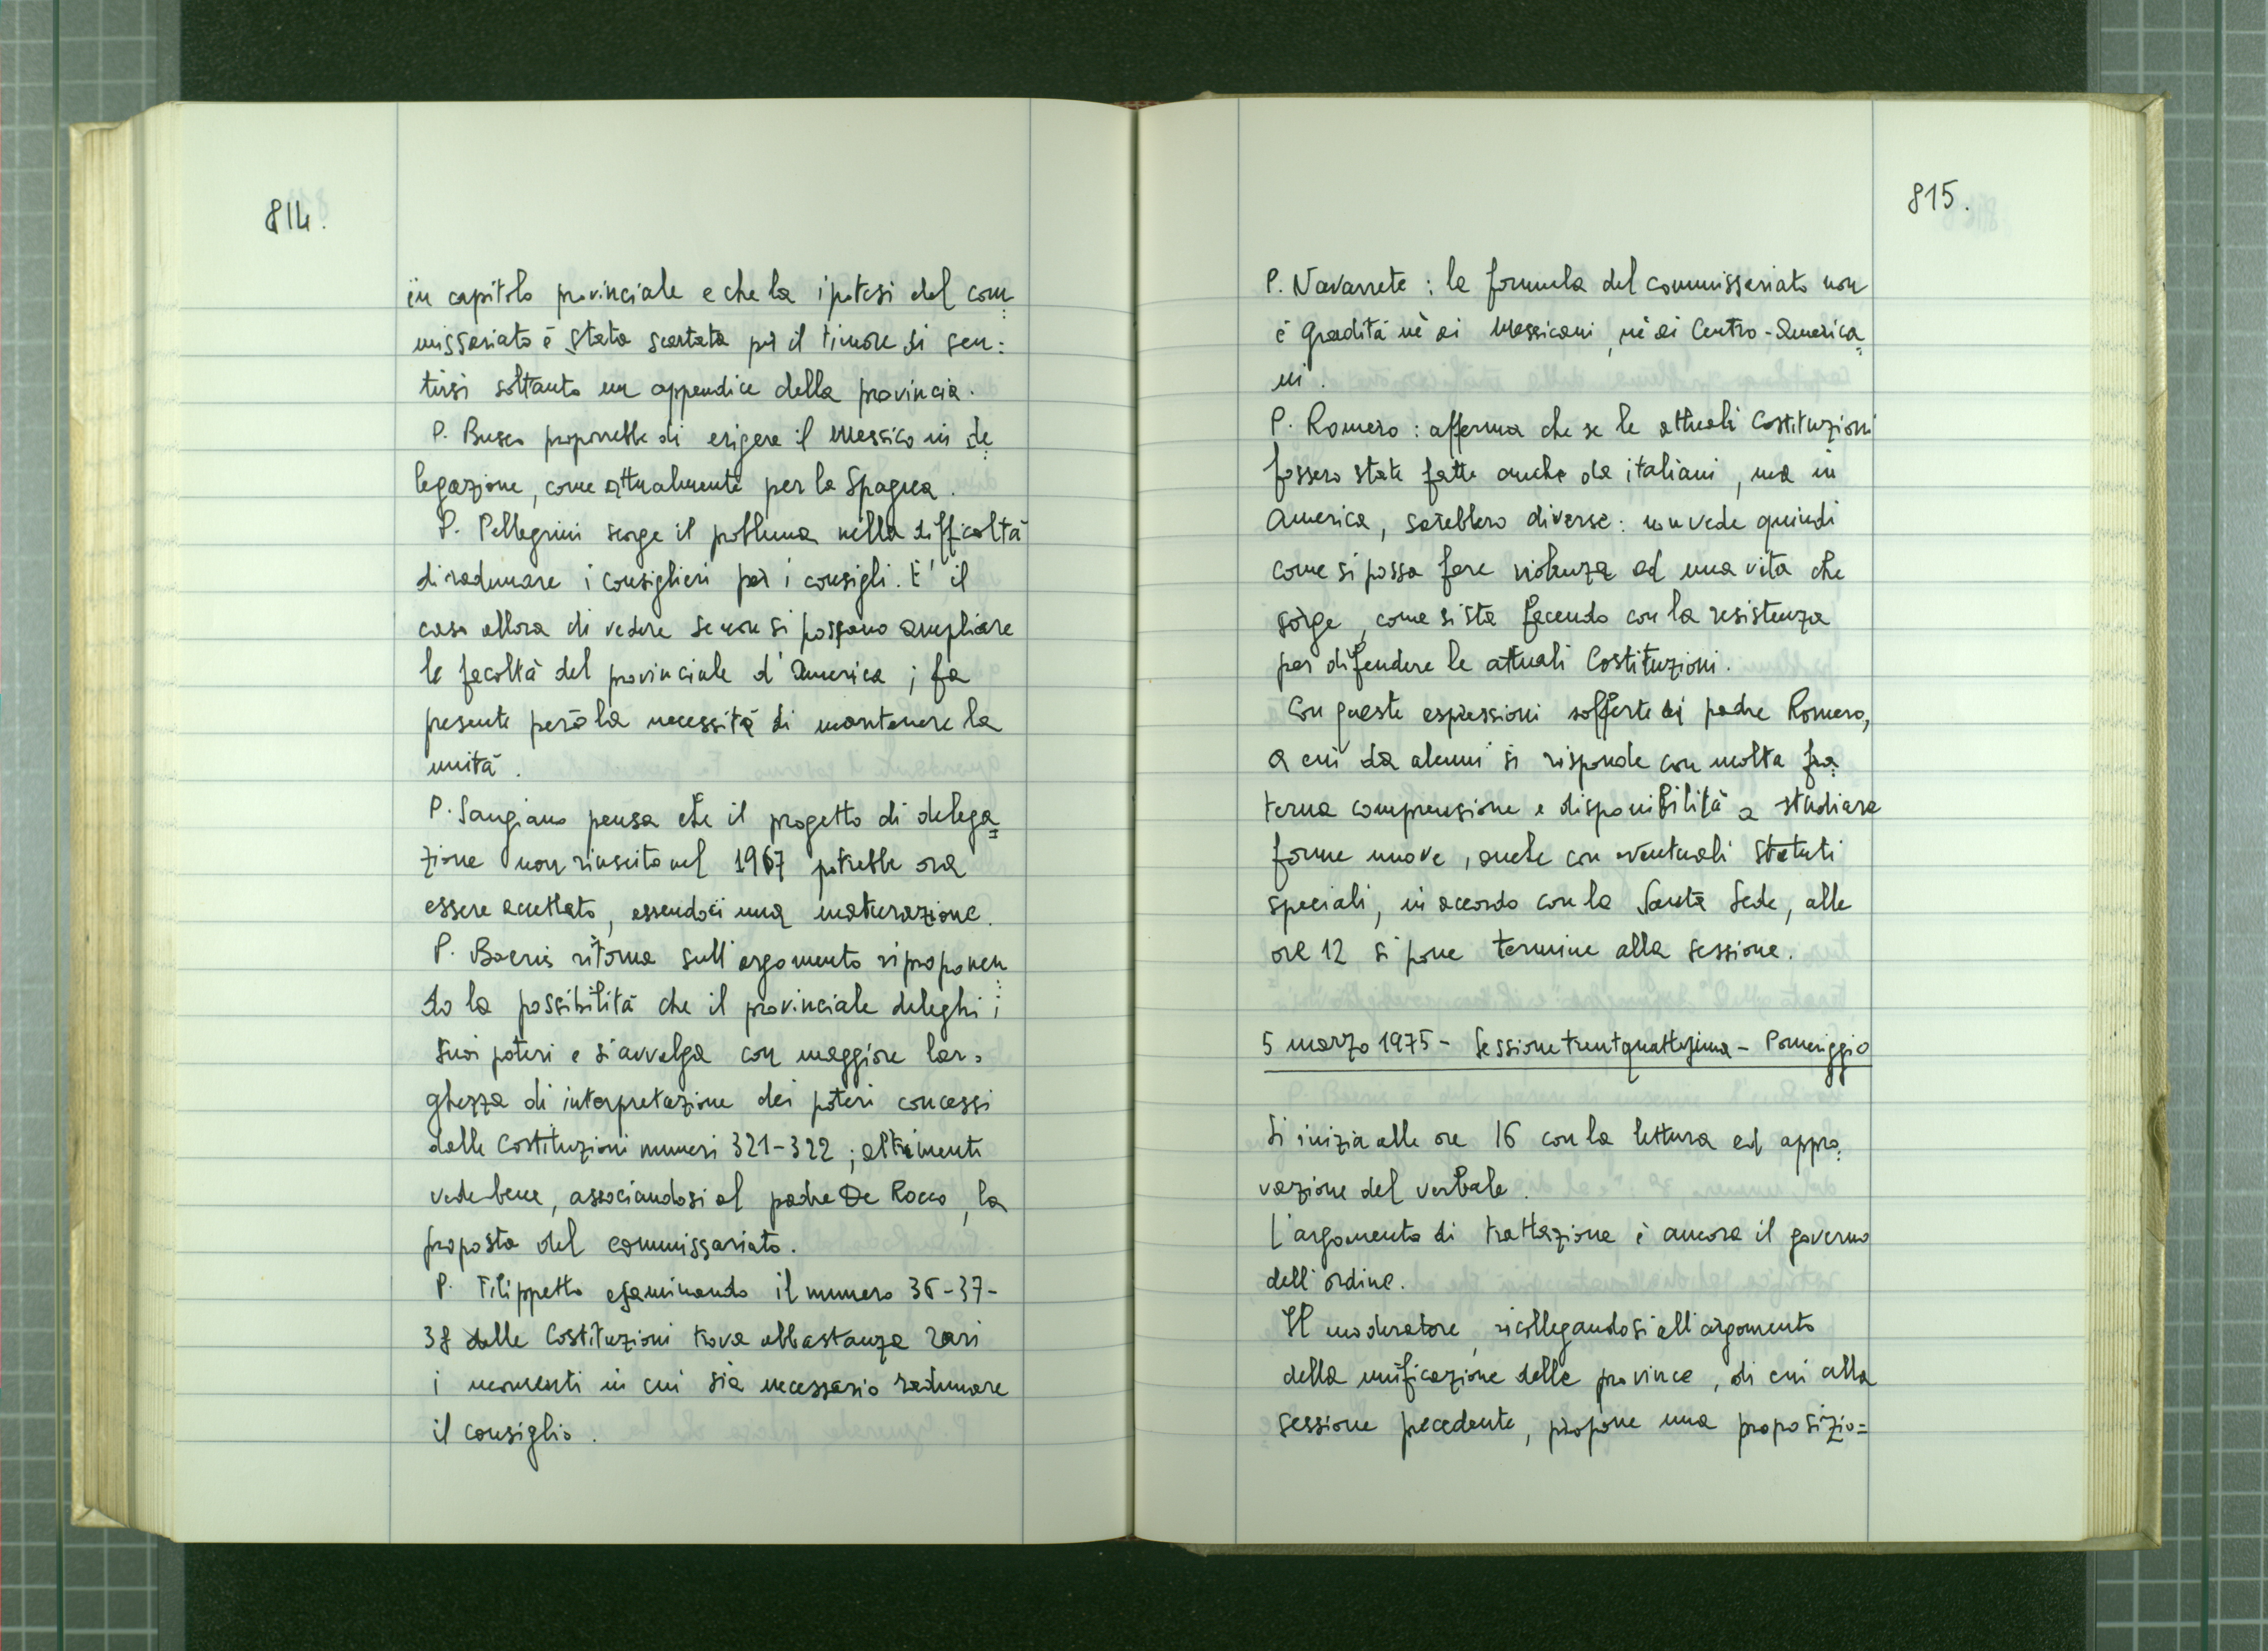 814.
in capitolo provinciale e che la ipotesi del com=
missariato è stata scartata per il timore di sen=
tirsi soltanto un appendice della provincia.
P. Busco proporrebbe di erigere il Messico in de=
legazione, come attualmente per la Spagna.
P. Pellegrini scorge il problema nella difficoltà
di radunare i consiglieri per i consigli. E' il
caso allora di vedere se non si possano ampliare
le facoltà del provinciale d'America; fa
presente però la necessità di mantenere la
unità.
P. Sangiano pensa che il progetto di delega=
zione non riuscito nel 1967 potrebbe ora
essere accettato, essendoci una maturazione.
P. Boeris ritorna sull'argomento riproponen=
do la possibilità che il provinciale deleghi i
suoi poteri e si avvalga con maggiore lar=
ghezza di interpretazione dei poteri concessi
dalle Costituzioni numeri 321-322; altrimenti
vede bene, associandosi al padre De Rocco, la
proposta del commissariato.
P. Filippetto esaminando il numero 36-37-
38 delle Costituzioni trova abbastanza rari
i momenti in cui sia necessario radunare
il consiglio.
815.
P. Navarrete: la formula del commissariato non
è gradita nè ai Messicani, nè ai Centro-America=
ni.
P. Romero: afferma che se le attuali Costituzioni
fossero state fatte anche da italiani, ma in
America, sarebbero diverse: non vede quindi
come si possa fare violenza ad una vita che
sorge, come si sta facendo con la resistenza
per difendere le attuali Costituzioni.
Con queste espressioni sofferte di padre Romero,
a cui da alcuni si risponde con molta fra=
terna comprensione e disponibilità a studiare
forme nuove, anche con eventuali statuti
speciali, in accordo con la Santa Sede, alle
ore 12 si pone termine alla sessione.
5 marzo 1975 - Sessione trentquattrima - Pomeriggio
Si inizia alle ore 16 con la lettura ed appro=
vazione del verbale.
L'argomento di trattazione è ancora il governo
dell'ordine.
Il moderatore, ricollegandosi all'argomento
della unificazione delle province, di cui alla
sessione precedente, propone una proposizio=